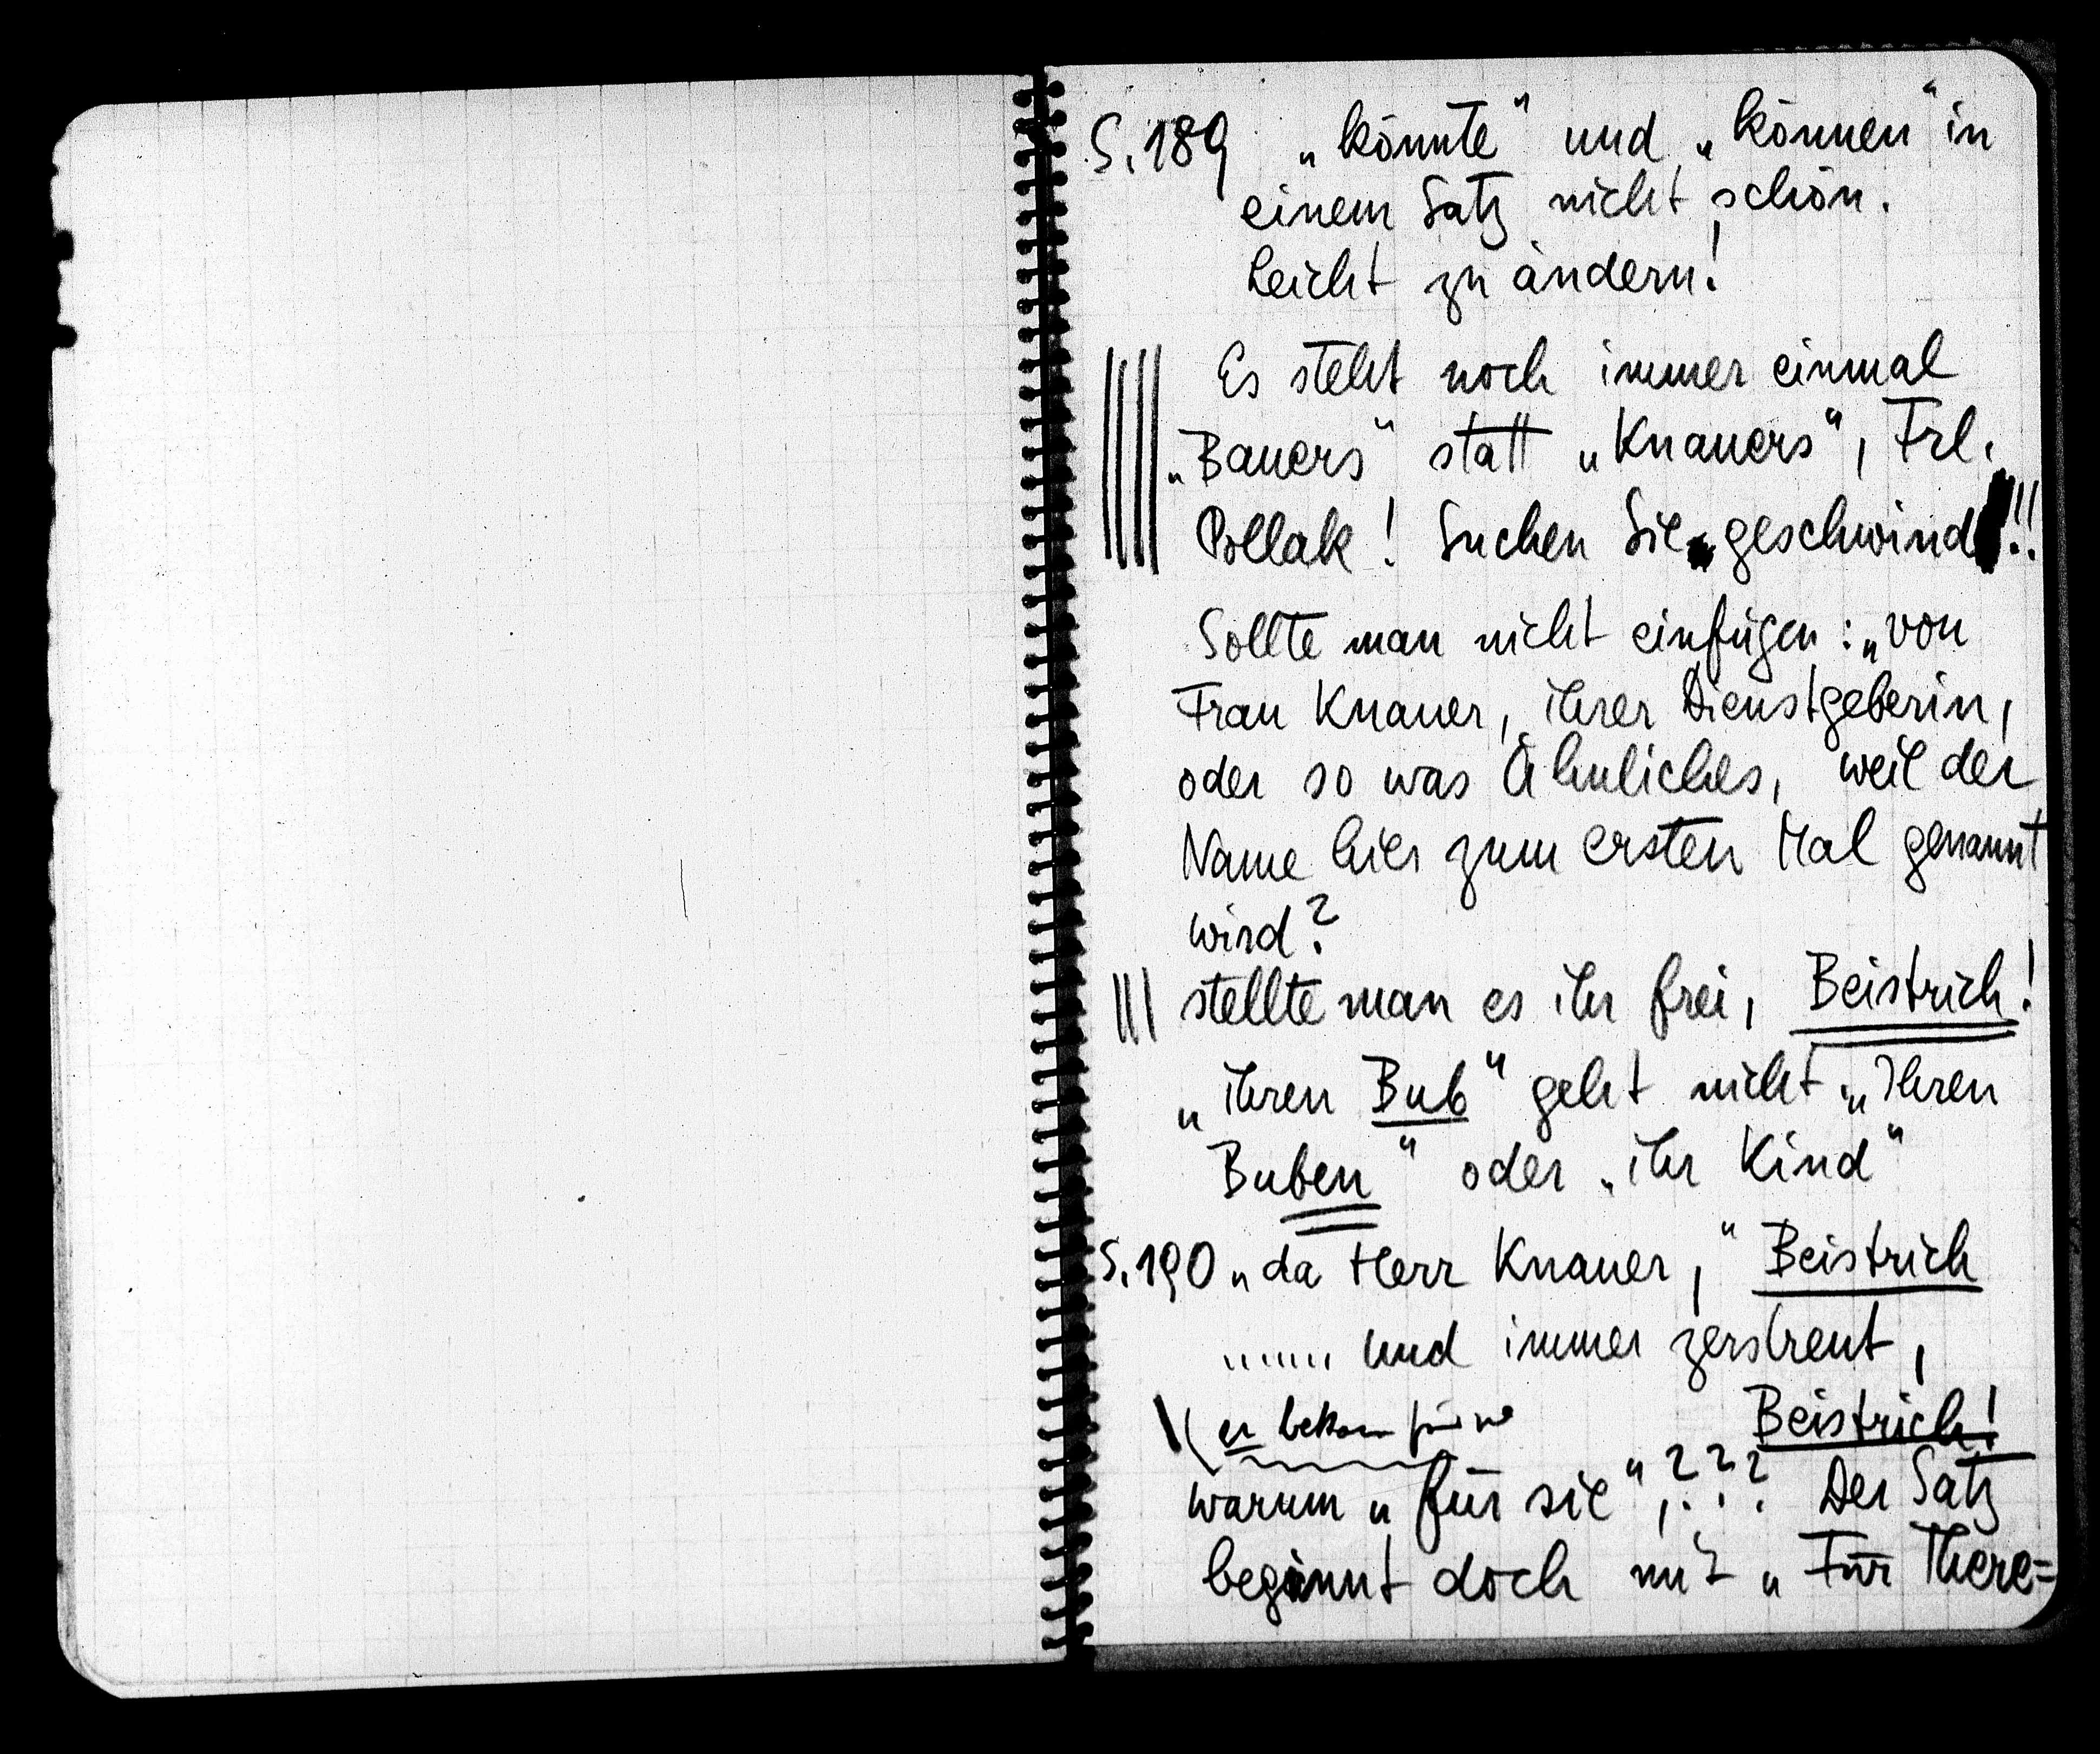 S. 189 „könnte" und „können" in
einem Satz nicht schön.
Leicht zu ändern!
Es steht noch immer einmal
„Bauers" statt „Knauers", Frl.
Pollak! Suchen Sie geschwind!!!
Sollte man nicht einfügen: „von
Frau Knauer, ihrer Dienstgeberin,
oder so was Ähnliches, weil der
Name hier zum ersten Mal genannt
wird?
stellte man es ihr frei, Beistrich!
„ihren Bub" geht nicht „Ihren
Buben" oder „ihr Kind"
S. 190 „da Herr Knauer," Beistrich
....... und immer zerstreut,
Beistrich!
er bekam
warum „für sie", ??? Der Satz
beginnt doch mit „Für There=